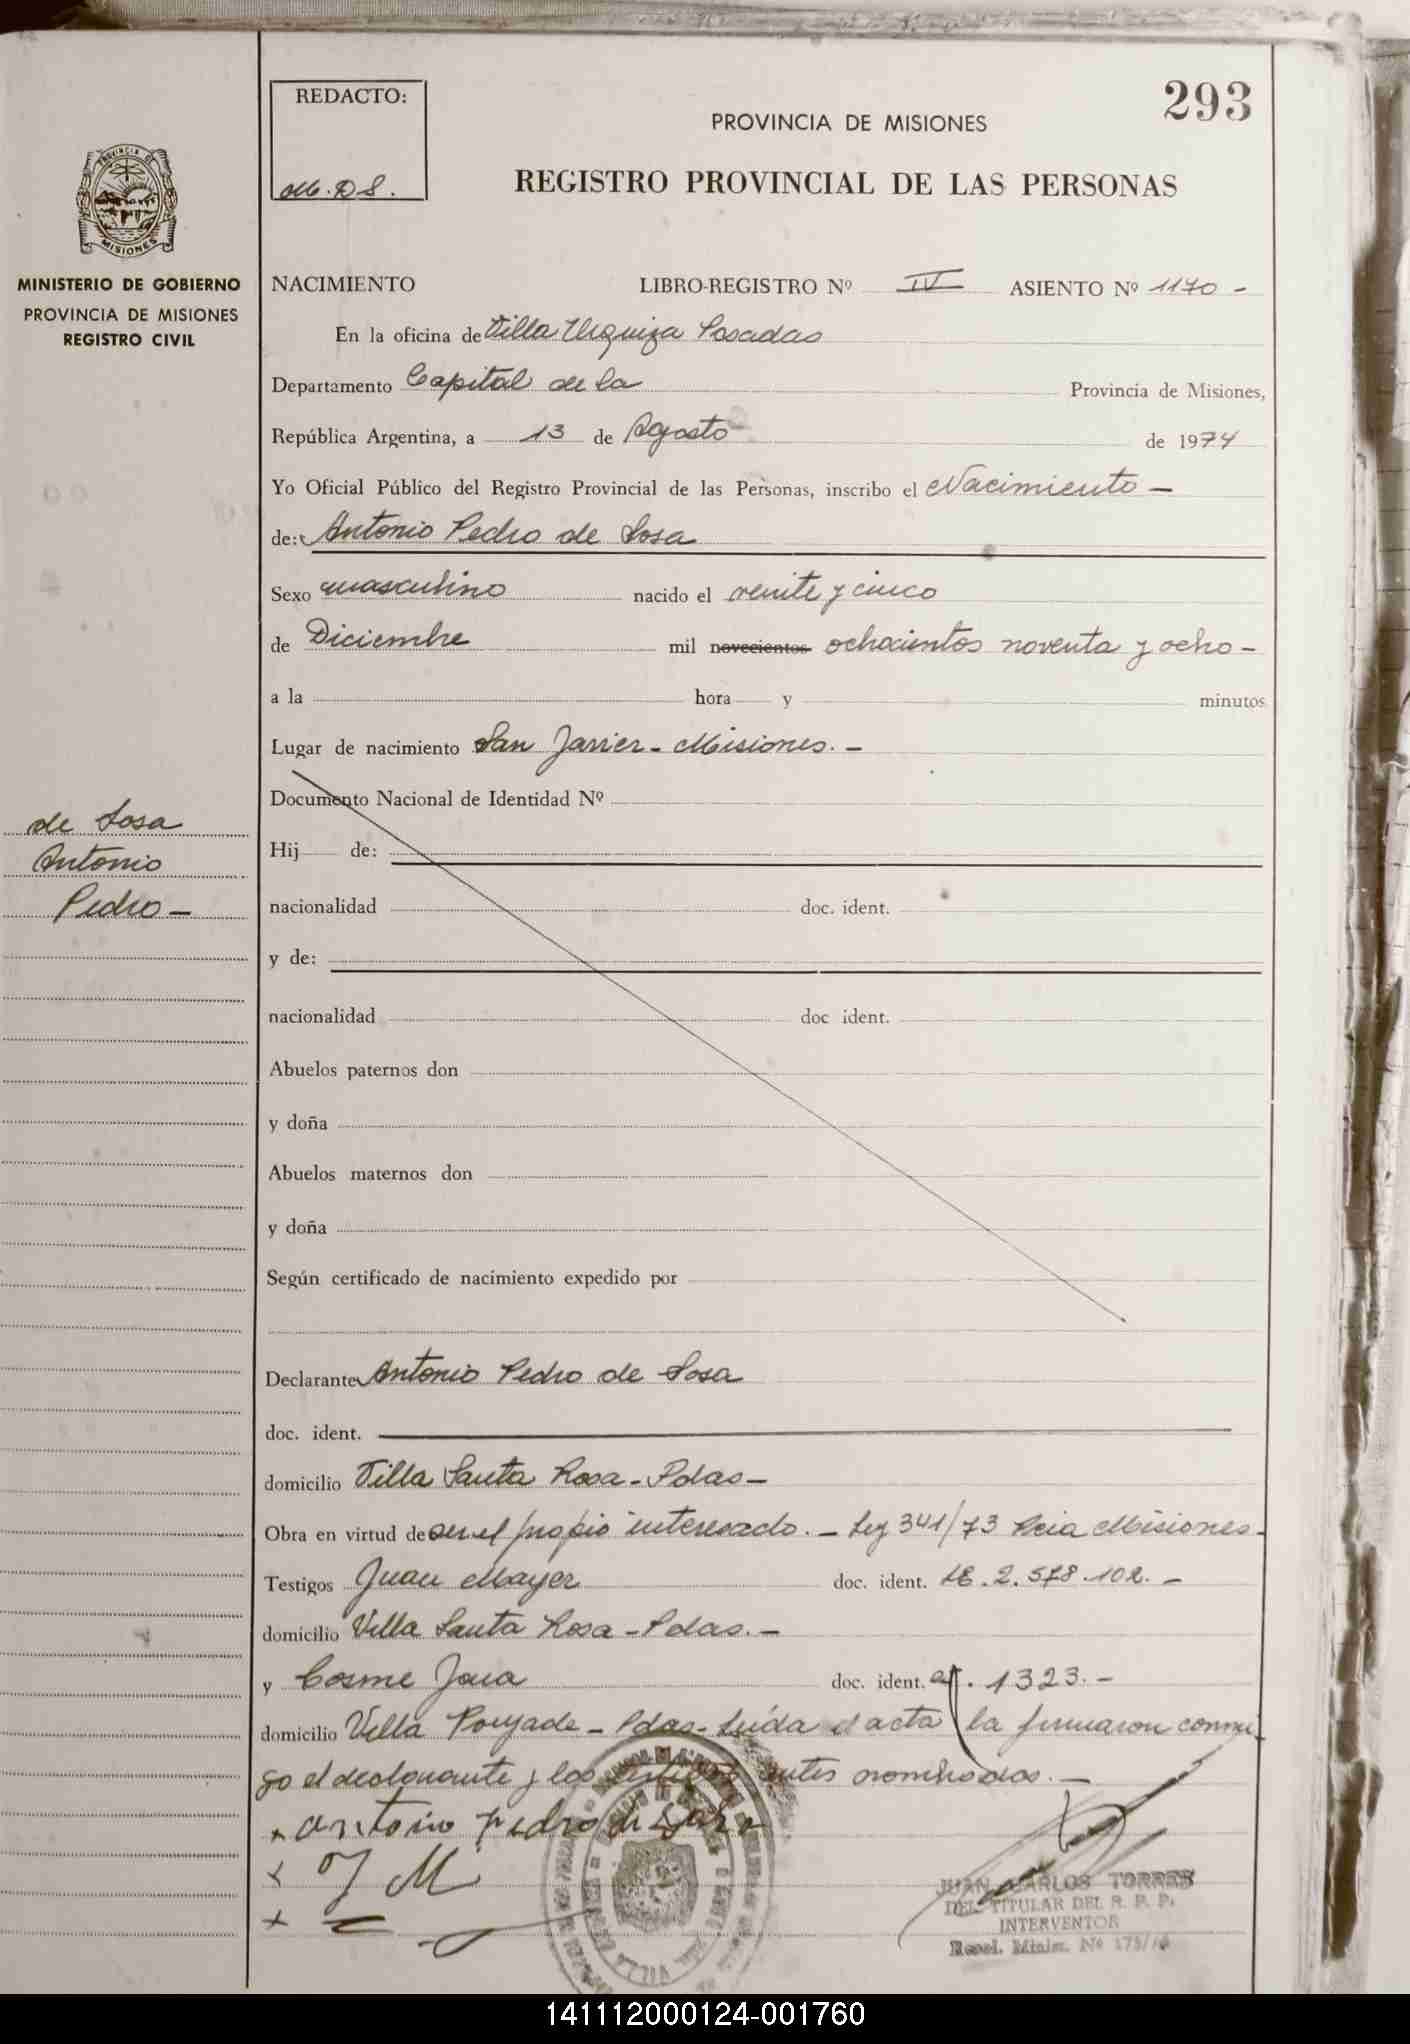 REDACTO:
M. D S.
293
PROVINCIA DE MISIONES
REGISTRO PROVINCIAL DE LAS PERSONAS
PROVINCIA DE
MISIONES
MINISTERIO DE GOBIERNO
PROVINCIA DE MISIONES
REGISTRO CIVIL
NACIMIENTO LIBRO-REGISTRO Nº IV ASIENTO Nº 1170 -
En la oficina de Villa Urquiza Posadas
Departamento Capital de la Provincia de Misiones,
República Argentina, a 13 de Agosto de 1974
Yo Oficial Público del Registro Provincial de las Personas, inscribo el Nacimiento -
de: Antonio Pedro de Sosa
Sexo masculino nacido el veinte y cinco
de Diciembre mil novecientos ochocientos noventa y ocho -
a la hora y minutos
Lugar de nacimiento San Javier - Misiones. -
Documento Nacional de Identidad Nº
de Sosa
Antonio
Pedro -
Hij de:
nacionalidad doc. ident.
y de:
nacionalidad doc ident.
Abuelos paternos don
y doña
Abuelos maternos don
y doña
Según certificado de nacimiento expedido por
Declarante Antonio Pedro de Sosa
doc. ident.
domicilio Villa Santa Rosa - Pdas -
Obra en virtud de ser el propio interesado. - Ley 341/73 Pcia Misiones -
Testigos Juan Mayer doc. ident. LE. 2. 578. 102. -
domicilio Villa Santa Rosa - Pdas. -
y Cosme Jara doc. ident. 1323. -
domicilio Villa Poujade - Pdas - Leída el acta la firmaron conmi
go el declarante y los testigos antes nombrados. -
x antonio pedro de Sosa
x J M
x
JUAN CARLOS TORRES
DEL. TITULAR DEL R. P. P.
INTERVENTOR
Resol. Minist. Nº
141112000124-001760